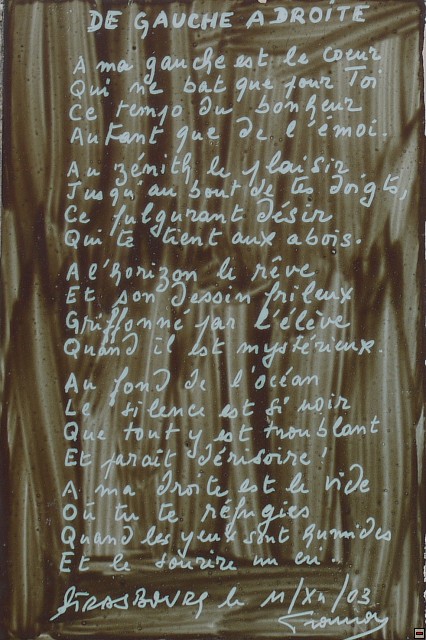 DE GAUCHE A DROITE
A ma gauche est le coeur
Qui ne bat que pour Toi
Ce temps du bonheur
Autant que de l'émoi.
Au zénith le plaisir
Jusqu'au bout de tes doigts,
Ce fulgurant désir
Qui te tient aux abois.
A l'horizon le rêve
Et son dessin frileux
Griffonné par l'élève
Quand il est mystérieux.
Au fond de l'océan
Le silence est si noir
Que tout y est troublant
Et paraît dérisoire!
A ma droite est le vide
Où tu te réfugies
Quand les yeux sont humides
Et le sourire un cri.
STRASBOURG le 11/XII/03